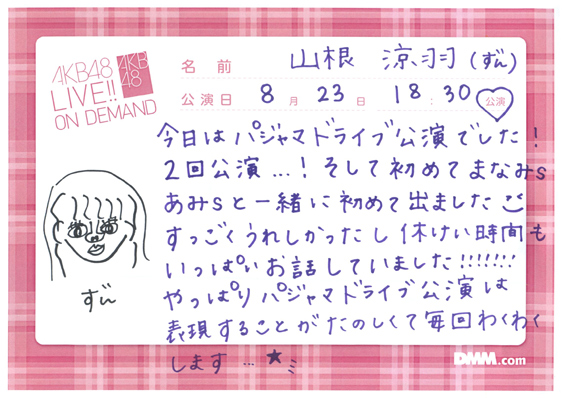 AKB48
LIVE!!
ON DEMAND
AKB
48
名前 山根 涼羽(ずん)
公演日 8月 23日 18:30 公演
今日はパジャマドライブ公演でした!
2回公演...!そして初めてまなみs
あみsと一緒に初めて出ました
すっごくうれしかったし休けい時間も
いっぱいお話していました!!!!!!!
やっぱりパジャマドライブ公演は
表現することがたのしくて毎回わくわく
します...★ミ
ずん
DMM.com